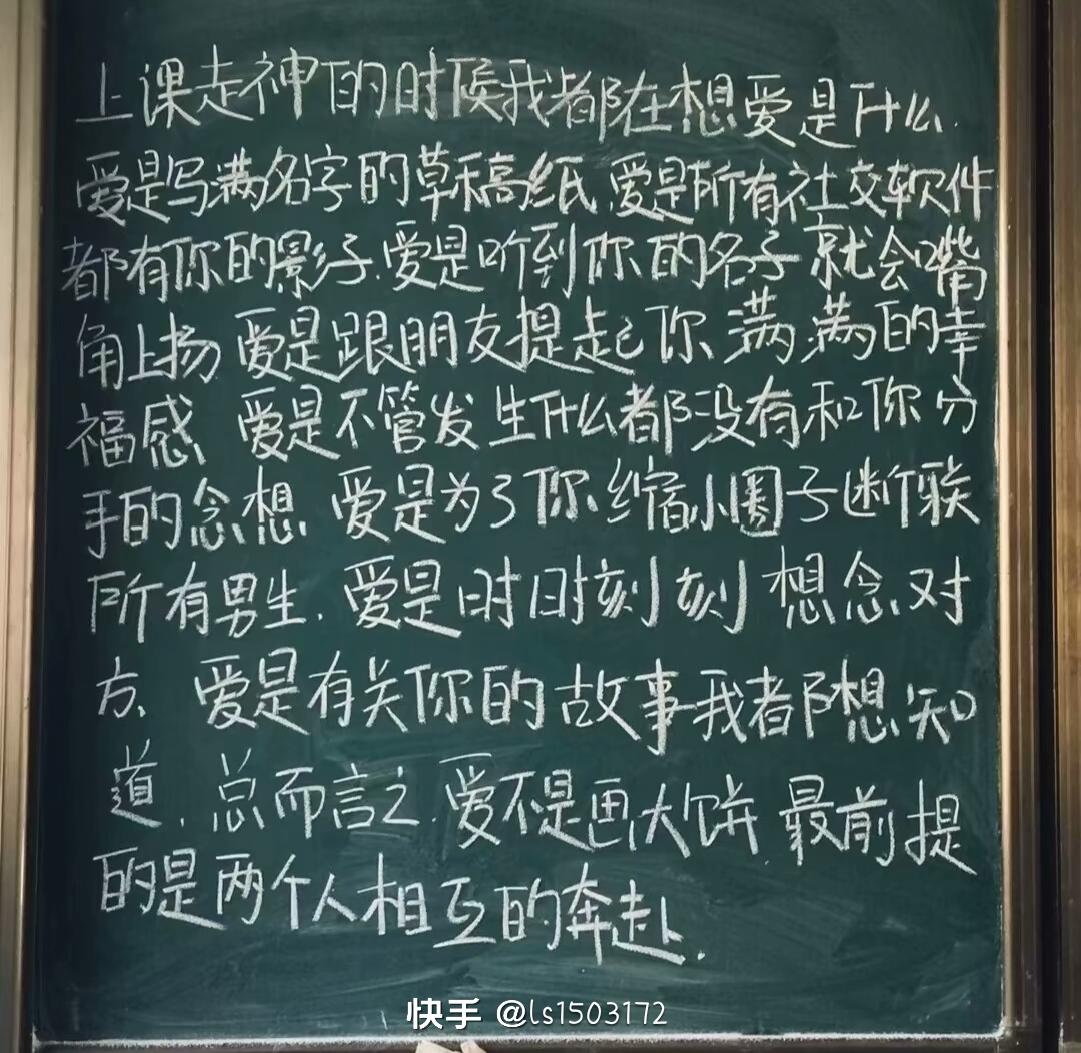 上课走神的时候我都在想爱是什么.
爱是写满名字的草稿纸、爱是所有社交软件
都有你的影子.爱是听到你的名子就会嘴
角上扬 爱是跟朋友提起你、满满的幸
福感、爱是不管发生什么都没有和你分
手的念想、爱是为了你缩小圈子断联
所有男生.爱是时时刻刻想念对
方、爱是有关你的故事我都想知
道.总而言之.爱不是画大饼.最前提
的是两个人相互的奔赴.
快手 @ls1503172